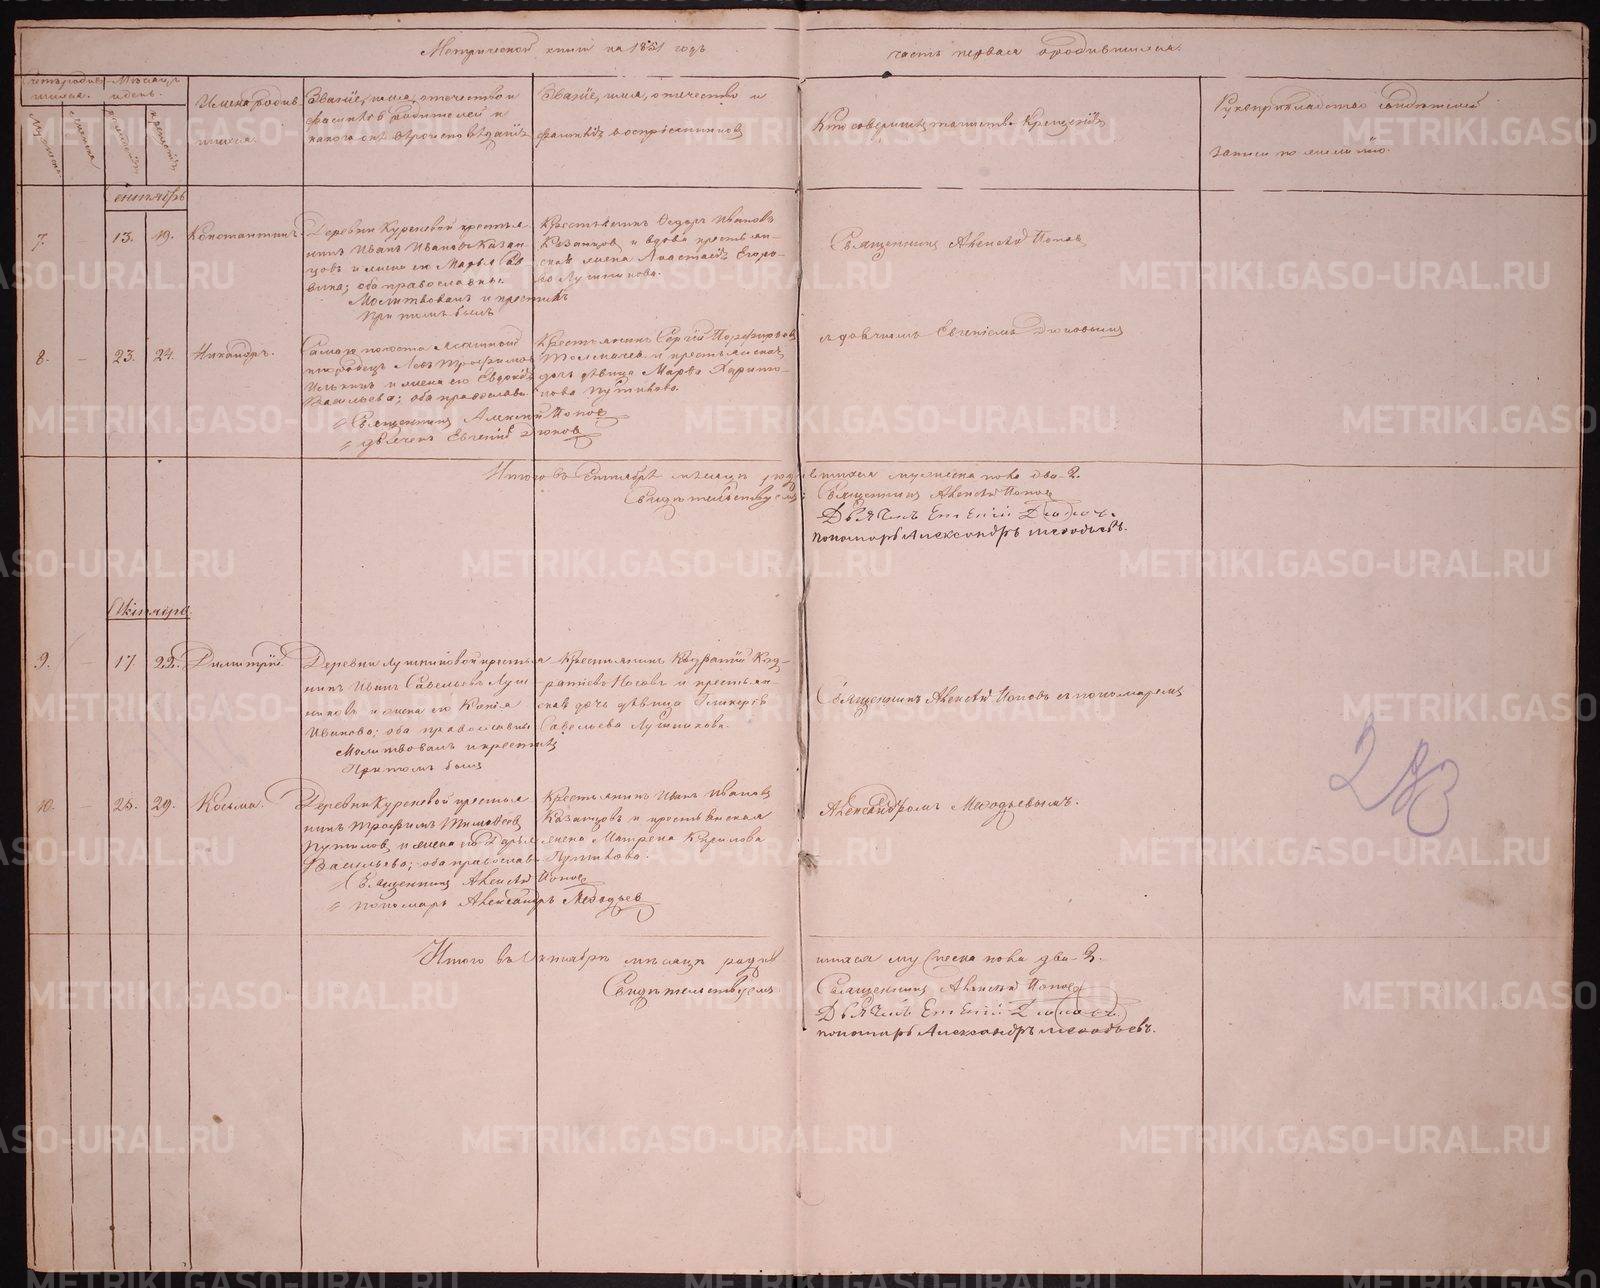 Метрической книги на 1851 годъ часть первая о родившихся.
Счетъ родив- Мѣсяцъ
шихся. и день.
Имена родив
шихся.
Званіе, имя, отечество и
фамилія родителей и
какого они вѣроисповѣданія
Званіе, имя, отечество и
фамилія воспріемниковъ
Кто совершилъ таинство Крещенія
Рукоприкладство свидѣтелей
записи по желанію.
Мужеска.
Женска
рожденія
крещенія
сентябрь
7. - 13. 19. Константинъ.
Деревни Куреневой крестья
нинъ Иванъ Ивановъ Казан-
цовъ и жена его Марья Сав
вина; оба православные.
Молитвовалъ и крестилъ
При томъ былъ
Крестьянинъ Ѳедоръ Ивановъ
Казанцовъ и вдова крестьян-
ская жена Анастасія Егоро-
ва Лушникова.
Священникъ Алексѣй Поповъ
8. - 23. 24. Никандръ.
Самаго погоста Ясашной
инородецъ Левъ Трофимов
Илькинъ и жена его Евдокія
Васильева; оба православн.
Священникъ Алексѣй Поповъ
дьячекъ Евгеній Дюков
Крестьянинъ Сергій Порфирьевъ
Толмачевъ и крестьянская
дочь дѣвица Марѳа Харито-
нова Путилова.
съ дьячкомъ Евгеніемъ Дюковымъ
Итого въ Сентябрѣ мѣсяцѣ родившихся мужеска пола два - 2.
Свидѣтельствуемъ: Священникъ Алексѣй Поповъ
Дьячикъ Евгеній Дюковъ.
пономарь Александръ Меѳодьевъ.
Октябрь.
9. - 17. 22. Димитрій
Деревни Лушниковой крестья
нинъ Иванъ Савельевъ Луш
никовъ и жена его Ксенія
Иванова; оба православны
Молитвовалъ и крестилъ
При томъ былъ
Крестьянинъ Кодратій Код-
ратіевъ Носовъ и крестьян-
ская дочь дѣвица Гликерія
Савельева Лушникова.
Священникъ Алексѣй Поповъ съ пономаремъ
10. - 25. 29. Косьма.
Деревни Куреневой крестья
нинъ Трофимъ Тимоѳеевъ
Путилов и жена его Дарья
Васильева; оба православ
Священникъ Алексѣй Поповъ
пономарь Александръ Меѳодьев
Крестьянинъ Иванъ Ивановъ
Казанцовъ и крестьянская
жена Матрена Кирилова
Путилова.
Александромъ Меѳодьевымъ.
Итого въ Октябрѣ мѣсяцѣ родившихся мужеска пола два - 2.
Свидѣтельствуемъ Священникъ Алексѣй Поповъ
Дьячикъ Евгеній Дюковъ.
пономарь Александръ Меѳодьевъ.
283
METRIKI.GASO-URAL.RU